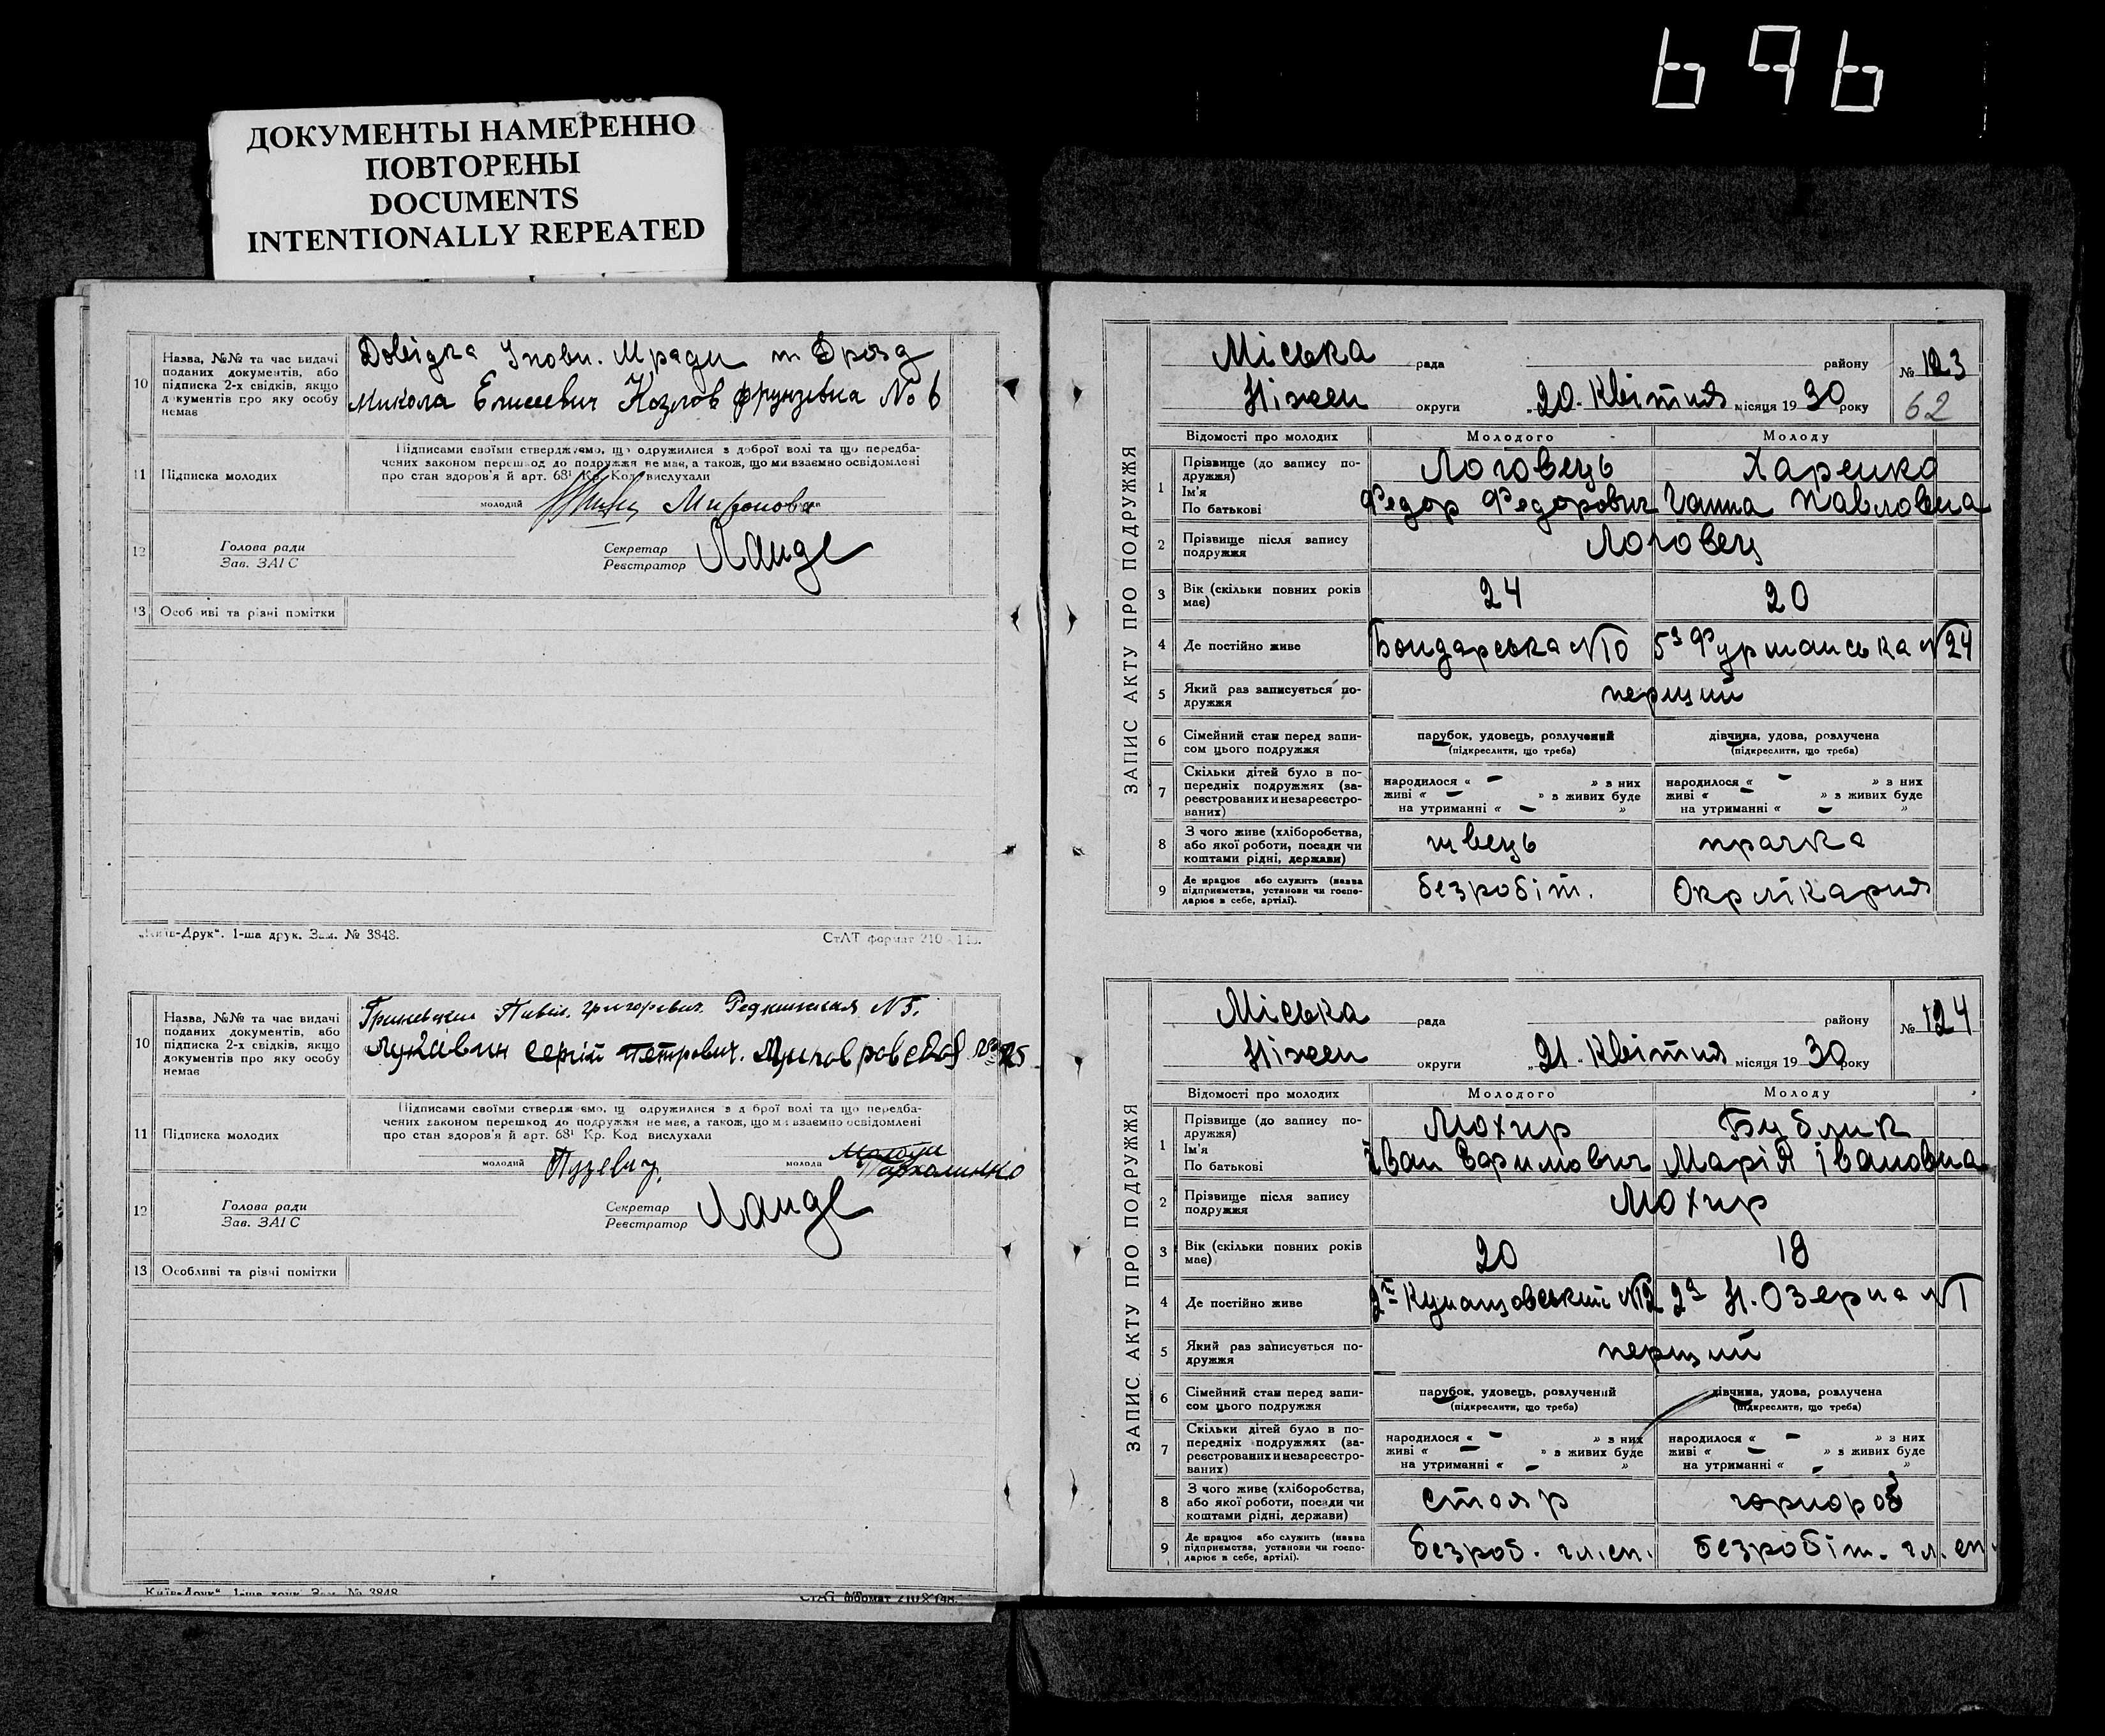 696
ДОКУМЕНТЫ НАМЕРЕННО
ПОВТОРЕНЫ
DOCUMENTS
INTENTIONALLY REPEATED
10
Назва, №№ та час видачі
поданих документів, або
підписка 2-х свідків, якщо
документів про яку особу
немає
Довідка
Мради
Дрозд
Микола Елисеевич
№ 6
11 Підписка молодих
Підписами своїми стверджуємо, що одружилися з доброї волі та що передба-
чених законом перешкод до подружжя не має, а також, що ми взаємно освідомлені
про стан здоров'я й арт. 68¹ Кр. Код вислухали
молодий
Миронова
12
Голова ради
Зав. ЗАГС
Секретар
Реєстратор
Ланде
13 Особливі та різні помітки
„Київ-Друк“. 1-ша друк. Зам. № 3848.
СтАТ формат 210
10
Назва, №№ та час видачі
поданих документів, або
підписка 2-х свідків, якщо
документів про яку особу
немає
Григоревич. №5.
Сергій Петрович.
11 Підписка молодих
Підписами своїми стверджуємо, що одружилися з доброї волі та що передба-
чених законом перешкод до подружжя не має, а також, що ми взаємно освідомлені
про стан здоров'я й арт. 68¹ Кр. Код вислухали
молодий Пузевич молода
12
Голова ради
Зав. ЗАГС
Секретар
Реєстратор
Ланде
13 Особливі та різні помітки
Київ-Друк“ 1-ша друк. Зам. № 3848
СтАТ формат 210×148.
ЗАПИС АКТУ ПРО ПОДРУЖЖЯ
Міська рада району № 123
Ніжен округи „20. Квітня місяця 1930 року
62
Відомості про молодих Молодого Молоду
1
Прізвище (до запису по-
дружжя)
Ім'я
По батькові
Логовець Харенко
Федор Федорович Ганна Павловна
2
Прізвище після запису
подружжя
Логовец
3
Вік (скільки повних років
має)
24 20
4 Де постійно живе
Бондарська №10 5а Фурманська №24
5
Який раз записується по-
дружжя
перший
6
Сімейний стан перед запи-
сом цього подружжя
парубок, удовець, розлучений
(підкреслити, що треба)
дівчина, удова, розлучена
(підкреслити, що треба)
7
Скільки дітей було в по-
передніх подружжях (за-
реєстрованих и незареєстро-
ваних)
народилося « – » з них
живі « – » з живих буде
на утриманні « – »
народилося « – » з них
живі « – » з живих буде
на утриманні « – »
8
З чого живе (хліборобства,
або якої роботи, посади чи
коштами рідні, держави)
швець прачка
9
Де працює або служить (назва
підприємства, установи чи госпо-
дарює в себе, артілі).
безробіт. Окрлікарня
ЗАПИС АКТУ ПРО ПОДРУЖЖЯ
Міська рада району № 124
Ніжен округи „21. Квітня місяця 1930 року
Відомості про молодих Молодого Молоду
1
Прізвище (до запису по-
дружжя)
Ім'я
По батькові
Мохир Бублик
Іван Марія Івановна
2
Прізвище після запису
подружжя
Мохир
3
Вік (скільки повних років
має)
20 18
4 Де постійно живе
№12 2а Н. Озерна №1
5
Який раз записується по-
дружжя
перший
6
Сімейний стан перед запи-
сом цього подружжя
парубок, удовець, розлучений
(підкреслити, що треба)
дівчина, удова, розлучена
(підкреслити, що треба)
7
Скільки дітей було в по-
передніх подружжях (за-
реєстрованих и незареєстро-
ваних)
народилося « – » з них
живі « – » з живих буде
на утриманні « – »
народилося « – » з них
живі « – » з живих буде
на утриманні « – »
8
З чого живе (хліборобства,
або якої роботи, посади чи
коштами рідні, держави)
столяр чорнороб
9
Де працює або служить (назва
підприємства, установи чи госпо-
дарює в себе, артілі).
безроб. чл. сп. безробіт. чл. сп.